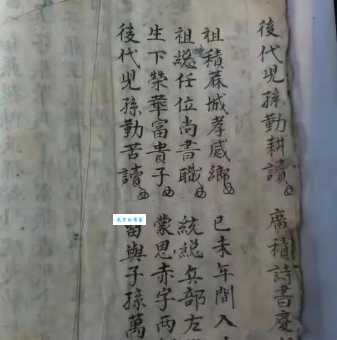 後代兒孫勤耕讀 廣積詩書慶
祖積蔴城孝感鄉 己未年間入
祖總任位尚書職 統總兵部左
生下榮華富貴子 蒙恩赤字兩
後代兒孫勤苦讀 留與子孫萬